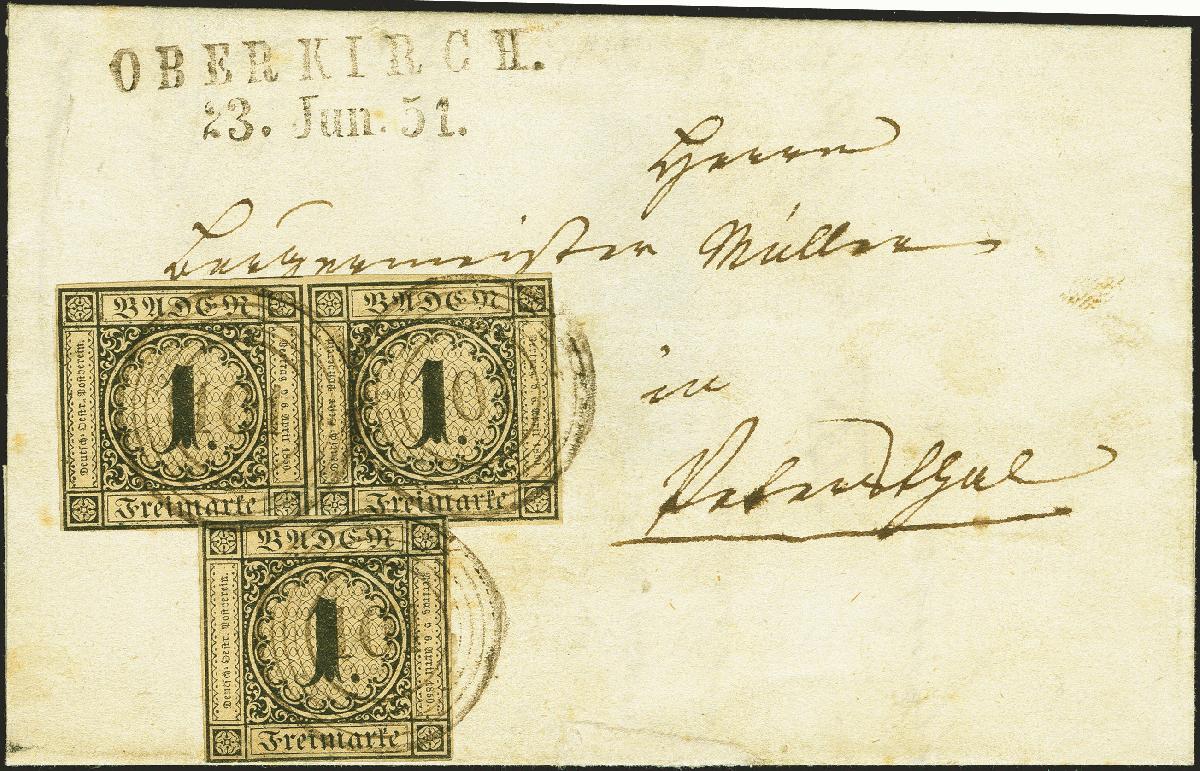 OBERKIRCH.
23. Jun. 51.
Herrn
Bürgermeister Müller
in
Petersthal
BADEN
1.
Freimarke
Deutsch-Oestr. Postverein.
Vertrag v. 6. April 1850.
BADEN
1.
Freimarke
Deutsch-Oestr. Postverein.
Vertrag v. 6. April 1850.
BADEN
1.
Freimarke
Deutsch-Oestr. Postverein.
Vertrag v. 6. April 1850.